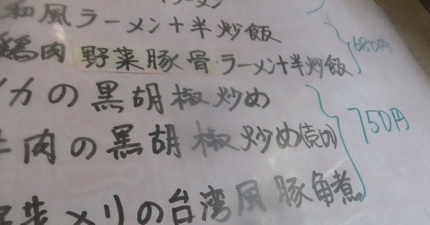 ラーメン
和風ラーメン+半炒飯
鶏肉 野菜豚骨・ラーメン+半炒飯 680円
イカの黒胡椒炒め
牛肉の黒胡椒炒め 750円
メリの台湾風豚角煮